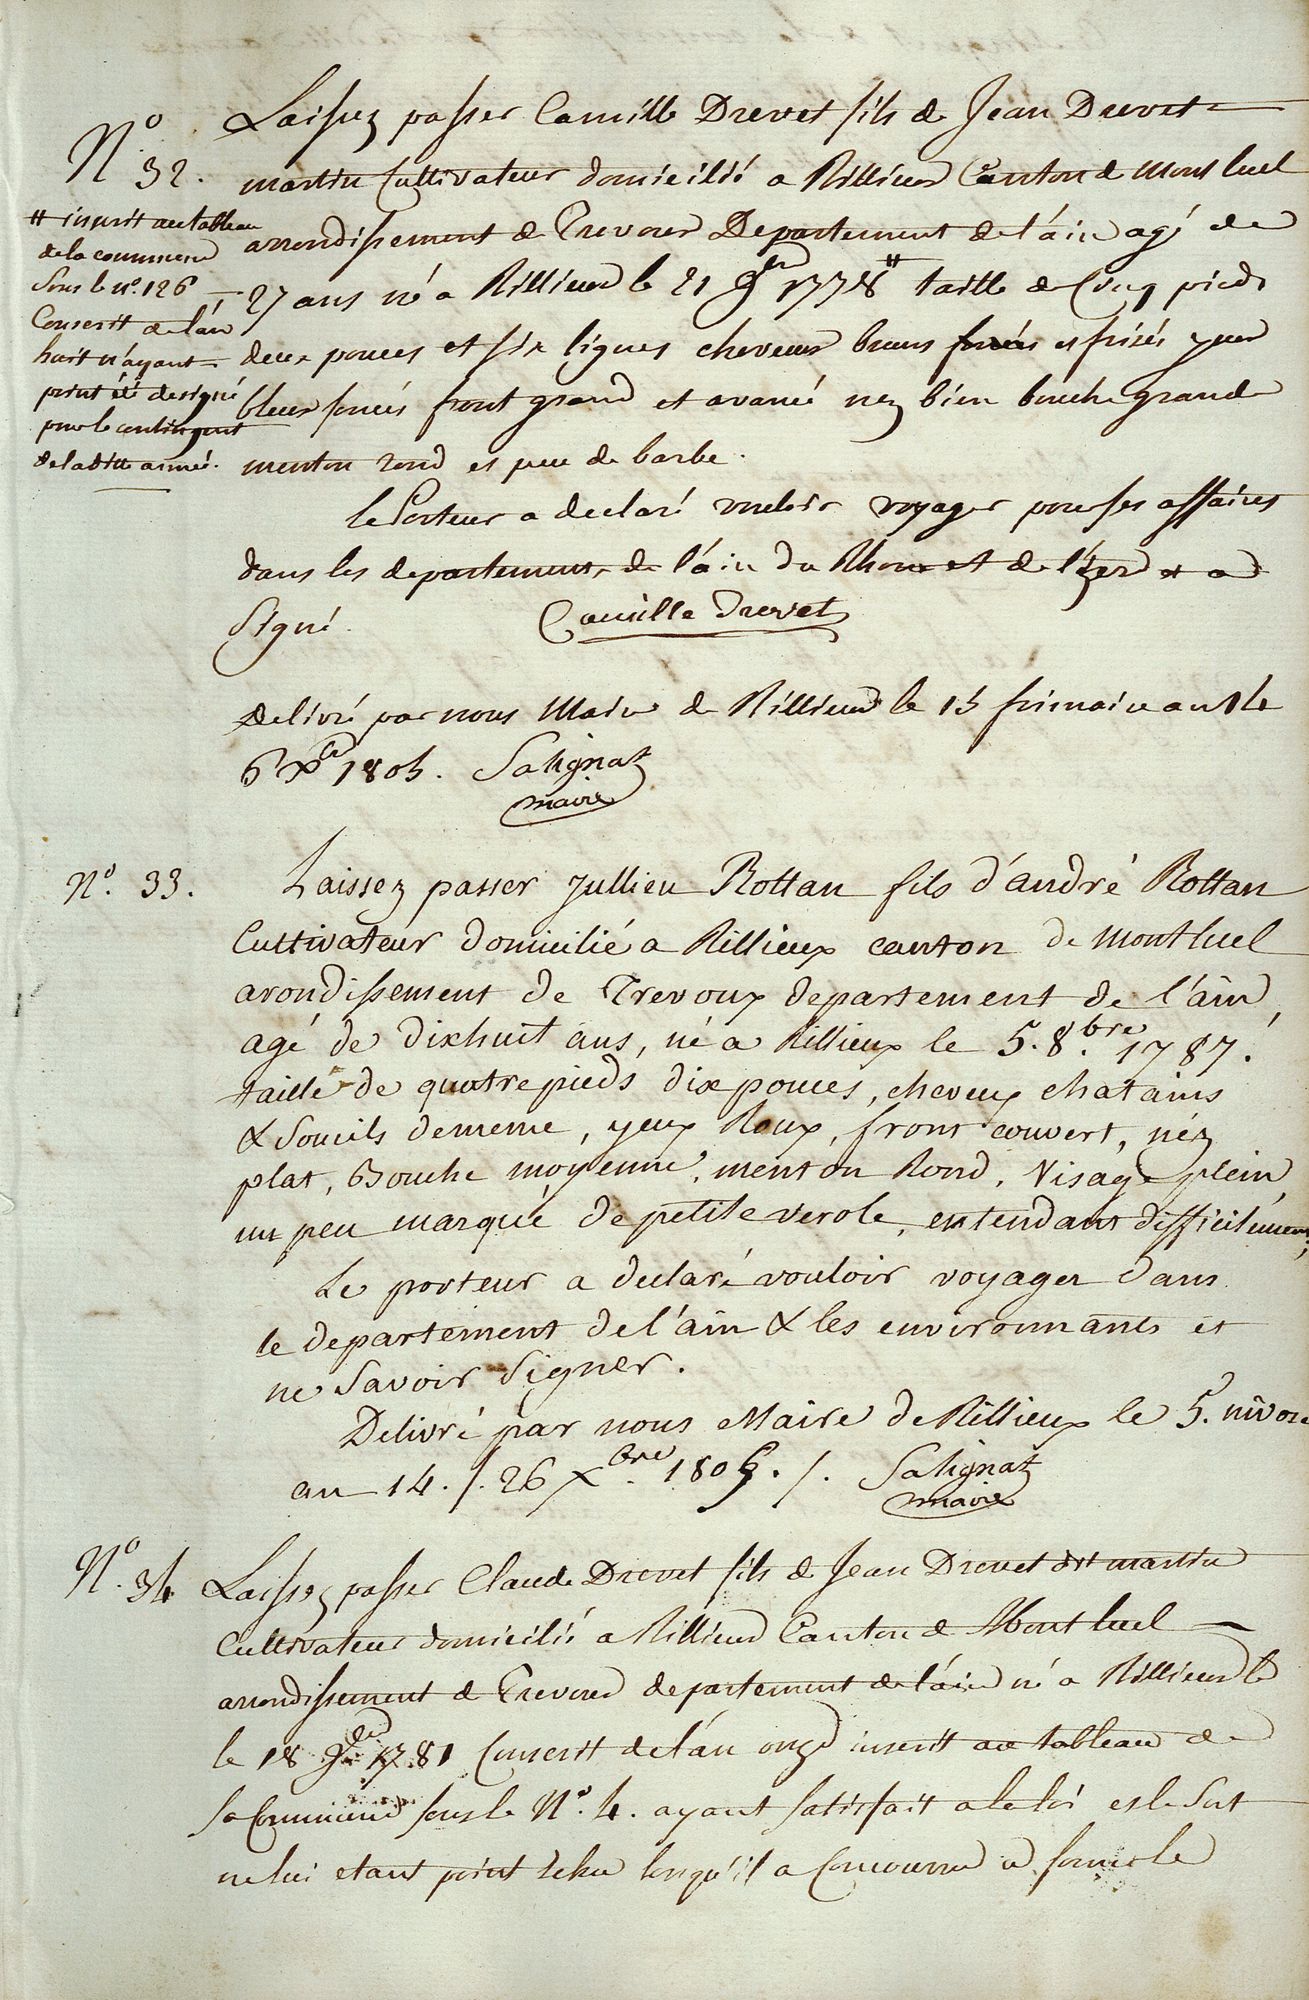 N.º 32.
Laissez passer Camille Drevet fils de Jean Drevet
martin Cultivateur domicilié a Rillieux Canton de Montluel
arrondissement de Trevoux Departement de l'ain agé de
27 ans né a Rillieux le 21 9bre 1778 # taille de Cinq pieds
deux pouces et six lignes cheveux bruns foncés et frisés yeux
bleux foncés front grand et avancé nez bien bouche grande
menton rond et peu de barbe.
# inscrit au tableau
de la commune
Sous le n.º 126
Conscrit de l'an
huit n'ayant
point été designé
pour le contingent
de la dite année.
le Porteur a declaré vouloir voyager pour ses affaires
dans les departements de l'ain du Rhone et de l'izer et a
Signé. Camille Drevet
Delivré par nous Maire de Rillieux le 15 frimaire an 14
6 Xbre 1805. Salignat
maire
N.º 33.
Laissez passer Jullien Rottan fils d'andré Rottan
Cultivateur domicilié a Rillieux canton de Montluel
arondissement de Trevoux departement de l'ain,
agé de dixhuit ans, né a Rillieux le 5. 8.bre 1787.
taille de quatre pieds dix pouces, cheveux chatains
& Sourcils dememe, yeux Roux, front couvert, néz
plat, Bouche moyenne, menton Rond, Visage plein,
un peu marqué de petite verole, entendant difficilement,
Le porteur a declaré vouloir voyager dans
le departement de l'ain & les environnants et
ne Savoir Signer.
Delivré par nous Maire de Rillieux le 5. nivose
an 14. /. 26 Xbre. 1805. /. Salignat
maire
N.º 34
Laissez passer Claude Drevet fils de Jean Drevet dit martin
Cultivateur domicilié a Rillieux Canton de Montluel
arrondissement de Trevoux departement de l'ain né a Rillieux le
le 18 9bre 1781 Conscrit de l'an onze inscrit au tableau de
sa Commune sous le N.º 4. ayant satisfait a la loi et le Sort
ne lui etant point echu lorsqu'il a Concouru a former le